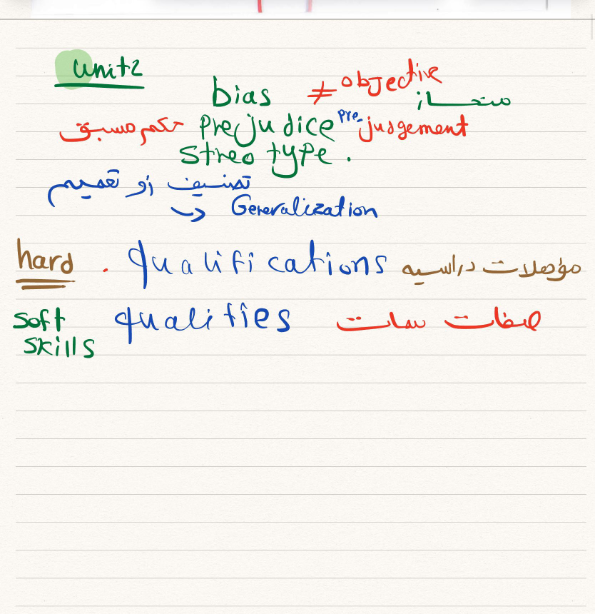 unit2
bias ≠ objective منحاز
حكم مسبق Prejudice Pre-jusgement
streo type.
تصنيف او تعميم
↳ Generalization
hard . qualifications مؤهلات دراسيه
soft qualities صفات سمات
skills